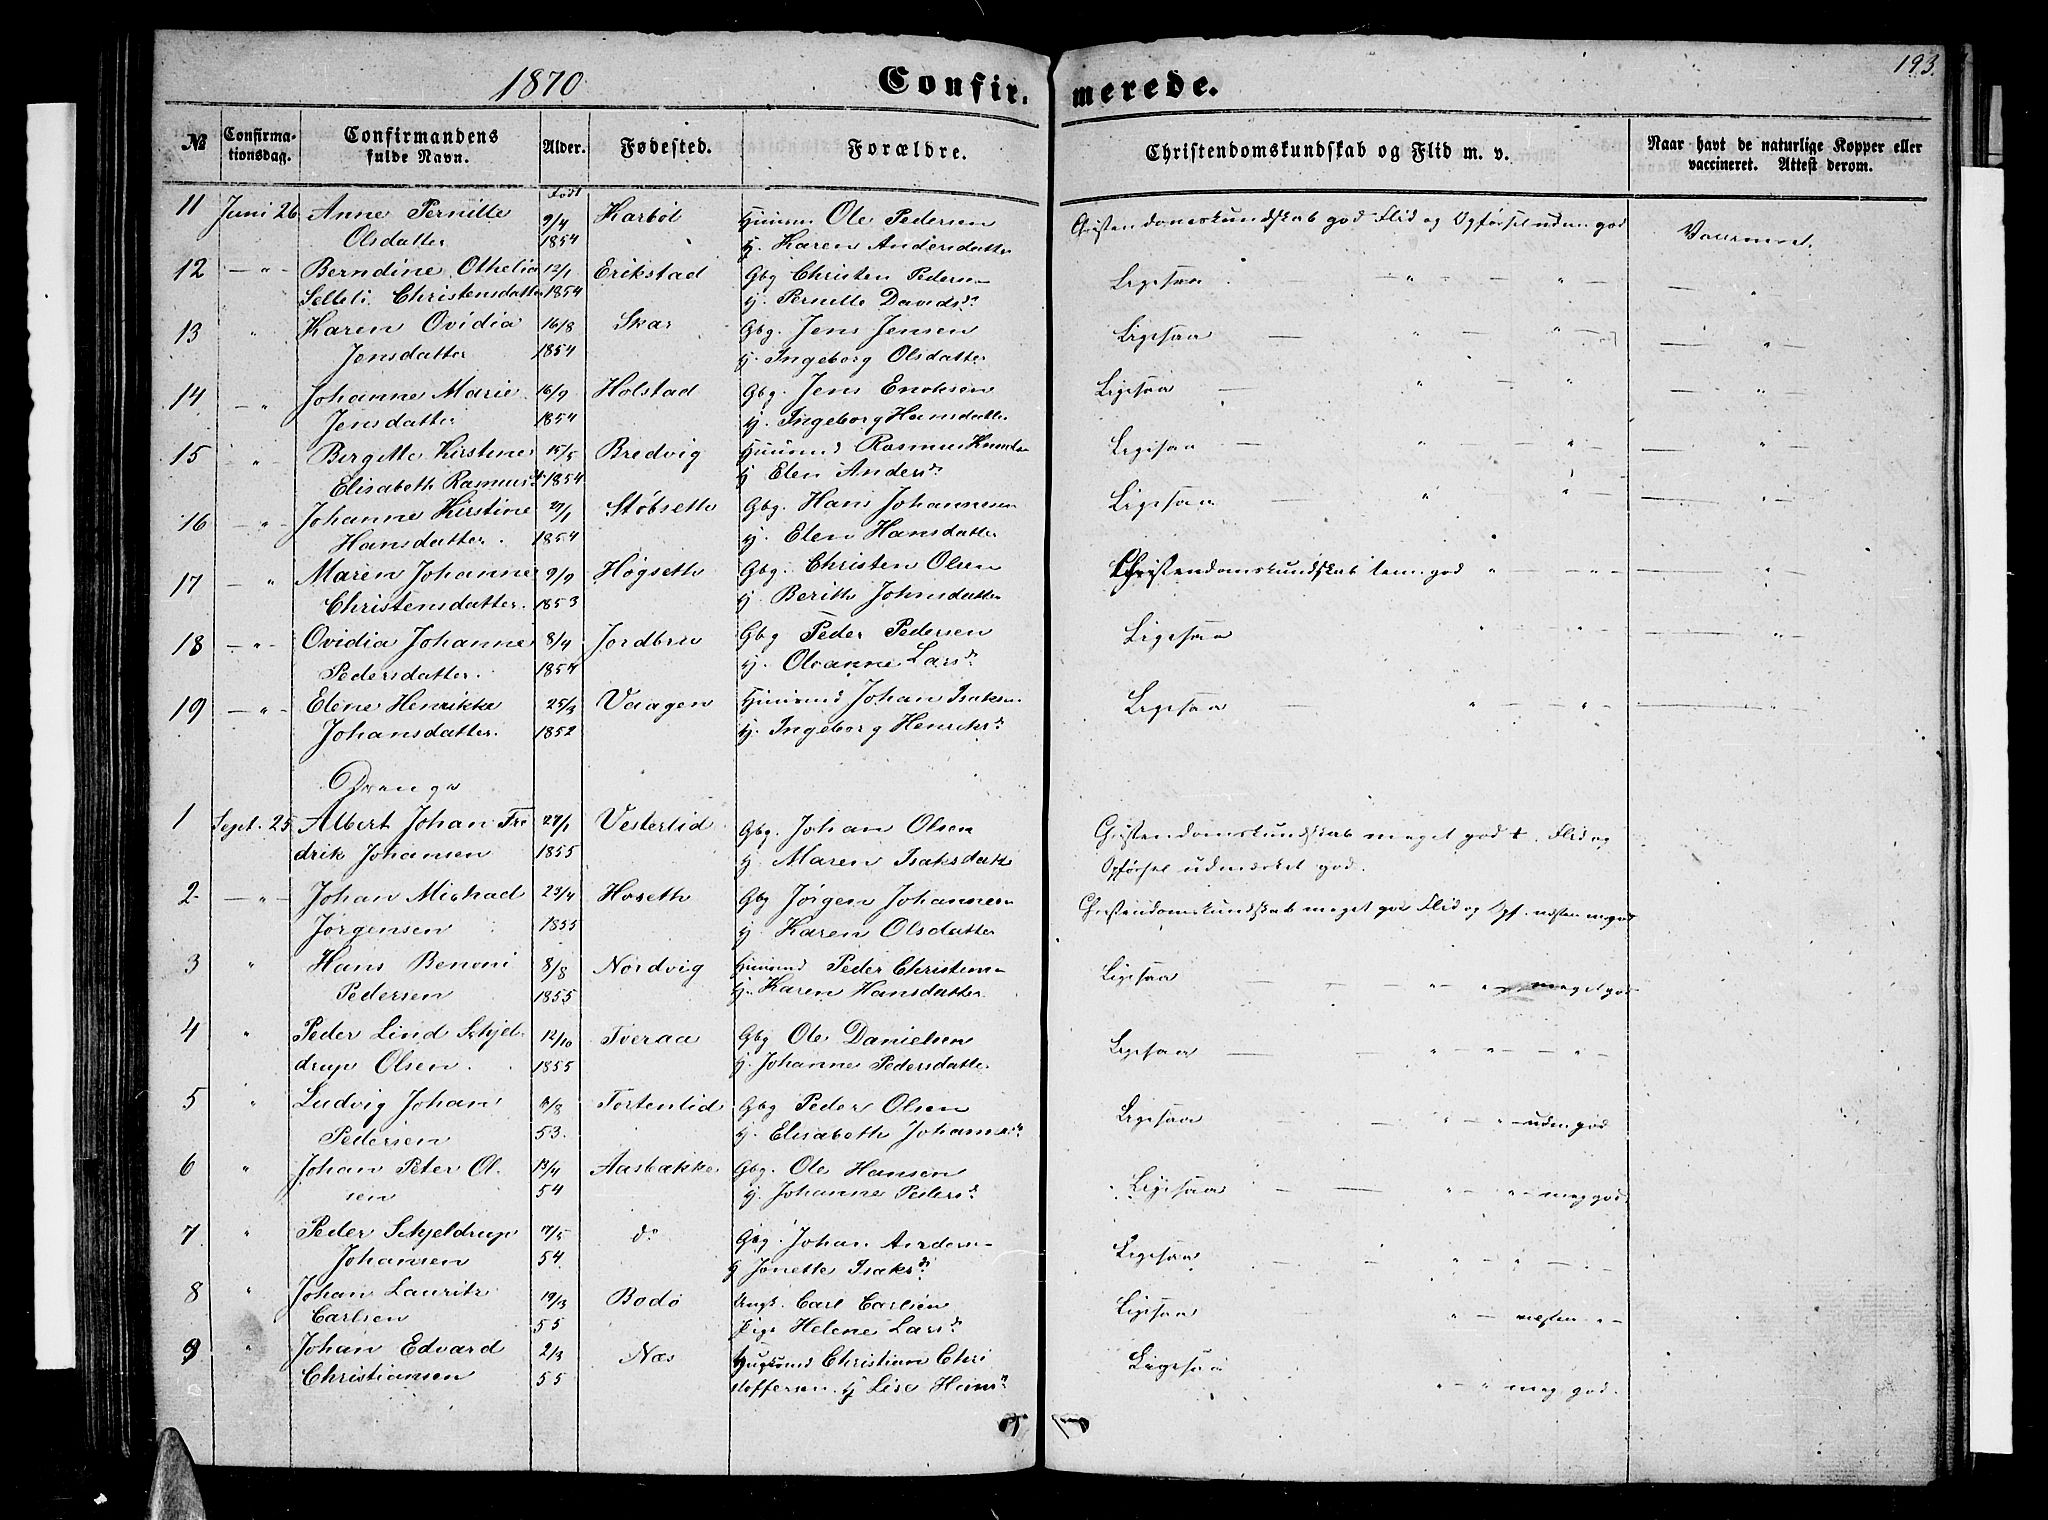 193.
1870 Confirmerede.
№ Confirmationsdag. Confirmandens fulde Navn. Alder. Fødested. Forældre. Christendomskundskab og Flid m. v. Naar havt de naturlige Kopper eller vaccineret. Attest derom.
Født
11 Juni 26 Anne Pernille 9/4 Karbøl Ole Pedersen Christendomskundskab god Flid og Opførsel udm god
Olsdatter 1854 Karen Andersdatter
12 — " — Berndine Othelia 12/1 Erikstad Gbg Christen Peders Ligesaa — " — " —
Christensdatter 1854 H. Pernille Davidsdr
13 " Karen Ovidia 16/8 Skar Gbg. Jens Jensen Ligesaa — " — " —
Jensdatter 1854 H. Ingeborg Olsdatter
14 — " Johanne Marie 16/9 Holstad Gbg. Jens Enoksen Ligesaa — " — " —
Jensdatter 1854 H. Ingeborg Hansdatter
15 — " Bergitte Kirstine 15/5 Bredvig Huusmd Rasmus Ligesaa — " — " —
Elisabeth Rasmusd. 1854 H Elen Andersdr
16 — " — Johanne Kirstine 27/1 Støbseth Gbg. Hans Johannesen Ligesaa — " — " —
Hansdatter. 1854 H. Elen Hansdatter
17 — " Maren Johanne 9/9 Høgseth Gbg. Christen Olsen Christendomskundskab tem. god " — " —
Christensdatter. 1853 H. Berith Johnsdatter
18 — " — Ovidia Johanne 8/4 Jordbru Gbg Peder Pedersen Ligesaa " — " —
Pedersdatter. 1854 H. Oleanne Larsdr
19 — " — Elene Henrikke 25/3 Vaagen Huusmd Johan Isaksen Ligesaa — " — " —
Johansdatter. 1852 H. Ingeborg Henriksdr
Drenge
1 Sept. 25 Albert Johan Fre 27/1 Vesterlid Gbg. Johan Olsen Christendomskundskab meget god +. Flid og
drik Johansen 1855 H. Maren Isaksdatter Opførsel udmærket god.
2 — " Johan Michael 23/4 Hoseth Gbg Jørgen Johannesen Christendomskundskab meget god Flid og Opf. næsten m god
Jørgensen 1855 H Karen Olsdatter
3 " Hans Benoni 8/8 Nordvig Huusmd Peder Christens Ligesaa
Pedersen 1855 H. Karen Hansdatter — " — " meget god
4 " Peder Lind Schjel 12/10 Tveraa Gbg Ole Danielsen Ligesaa — " — " — " —
drup Olsen. 1855 H. Johanne Pedersdatter
5 " Ludvig Johan /8 Tortenlid Gbg Peder Olsen Ligesaa " — " — udm god
Pedersen 53. H. Elisabeth Johannesdr
6 " Johan Peter Ol 13/4 Aasbakke Gbg. Ole Hansen Ligesaa — " — " — meg god
sen 54 H. Johanne Pedersdr
7 " Peder Schjeldrup 17/5 do Gbg. Johan Anders Ligesaa — " — " —
Johansen 54. H Jonette Isaksdr
8 " Johan Lauritz 19/3 Bodø Ungk. Carl Carlsen Ligesaa " — næsten " —
Carlsen 55 Pige Helene Larsdr
9 " Johan Edvard 2/3 Næs Christian Chri Ligesaa
Christiansen 55 stoffersen. H Lise Hansdr " — " meg god.